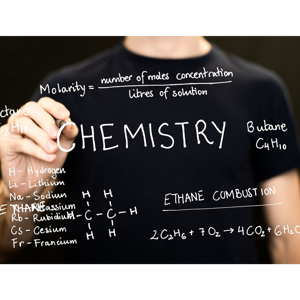 number of moles concentration
Molarity =
litres of solution
CHEMISTRY
Butane
C4H10
H - Hydrogen
Li - Lithium
Na - Sodium
Rb - Rubidium
Cs - Cesium
Fr - Francium
H H
H-C-C-H
H H
ETHANE COMBUSTION
2C2H6 + 7O2 → 4CO2 + 6H2O